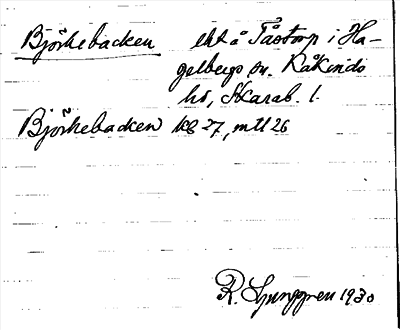 Björkebacken ekt å Tåstorp i Ha-
gelbergs sn. Kåkinds
hd, Skarab. l.
Björkebacken kg 27, mtl 26
R. Ljunggren 1930